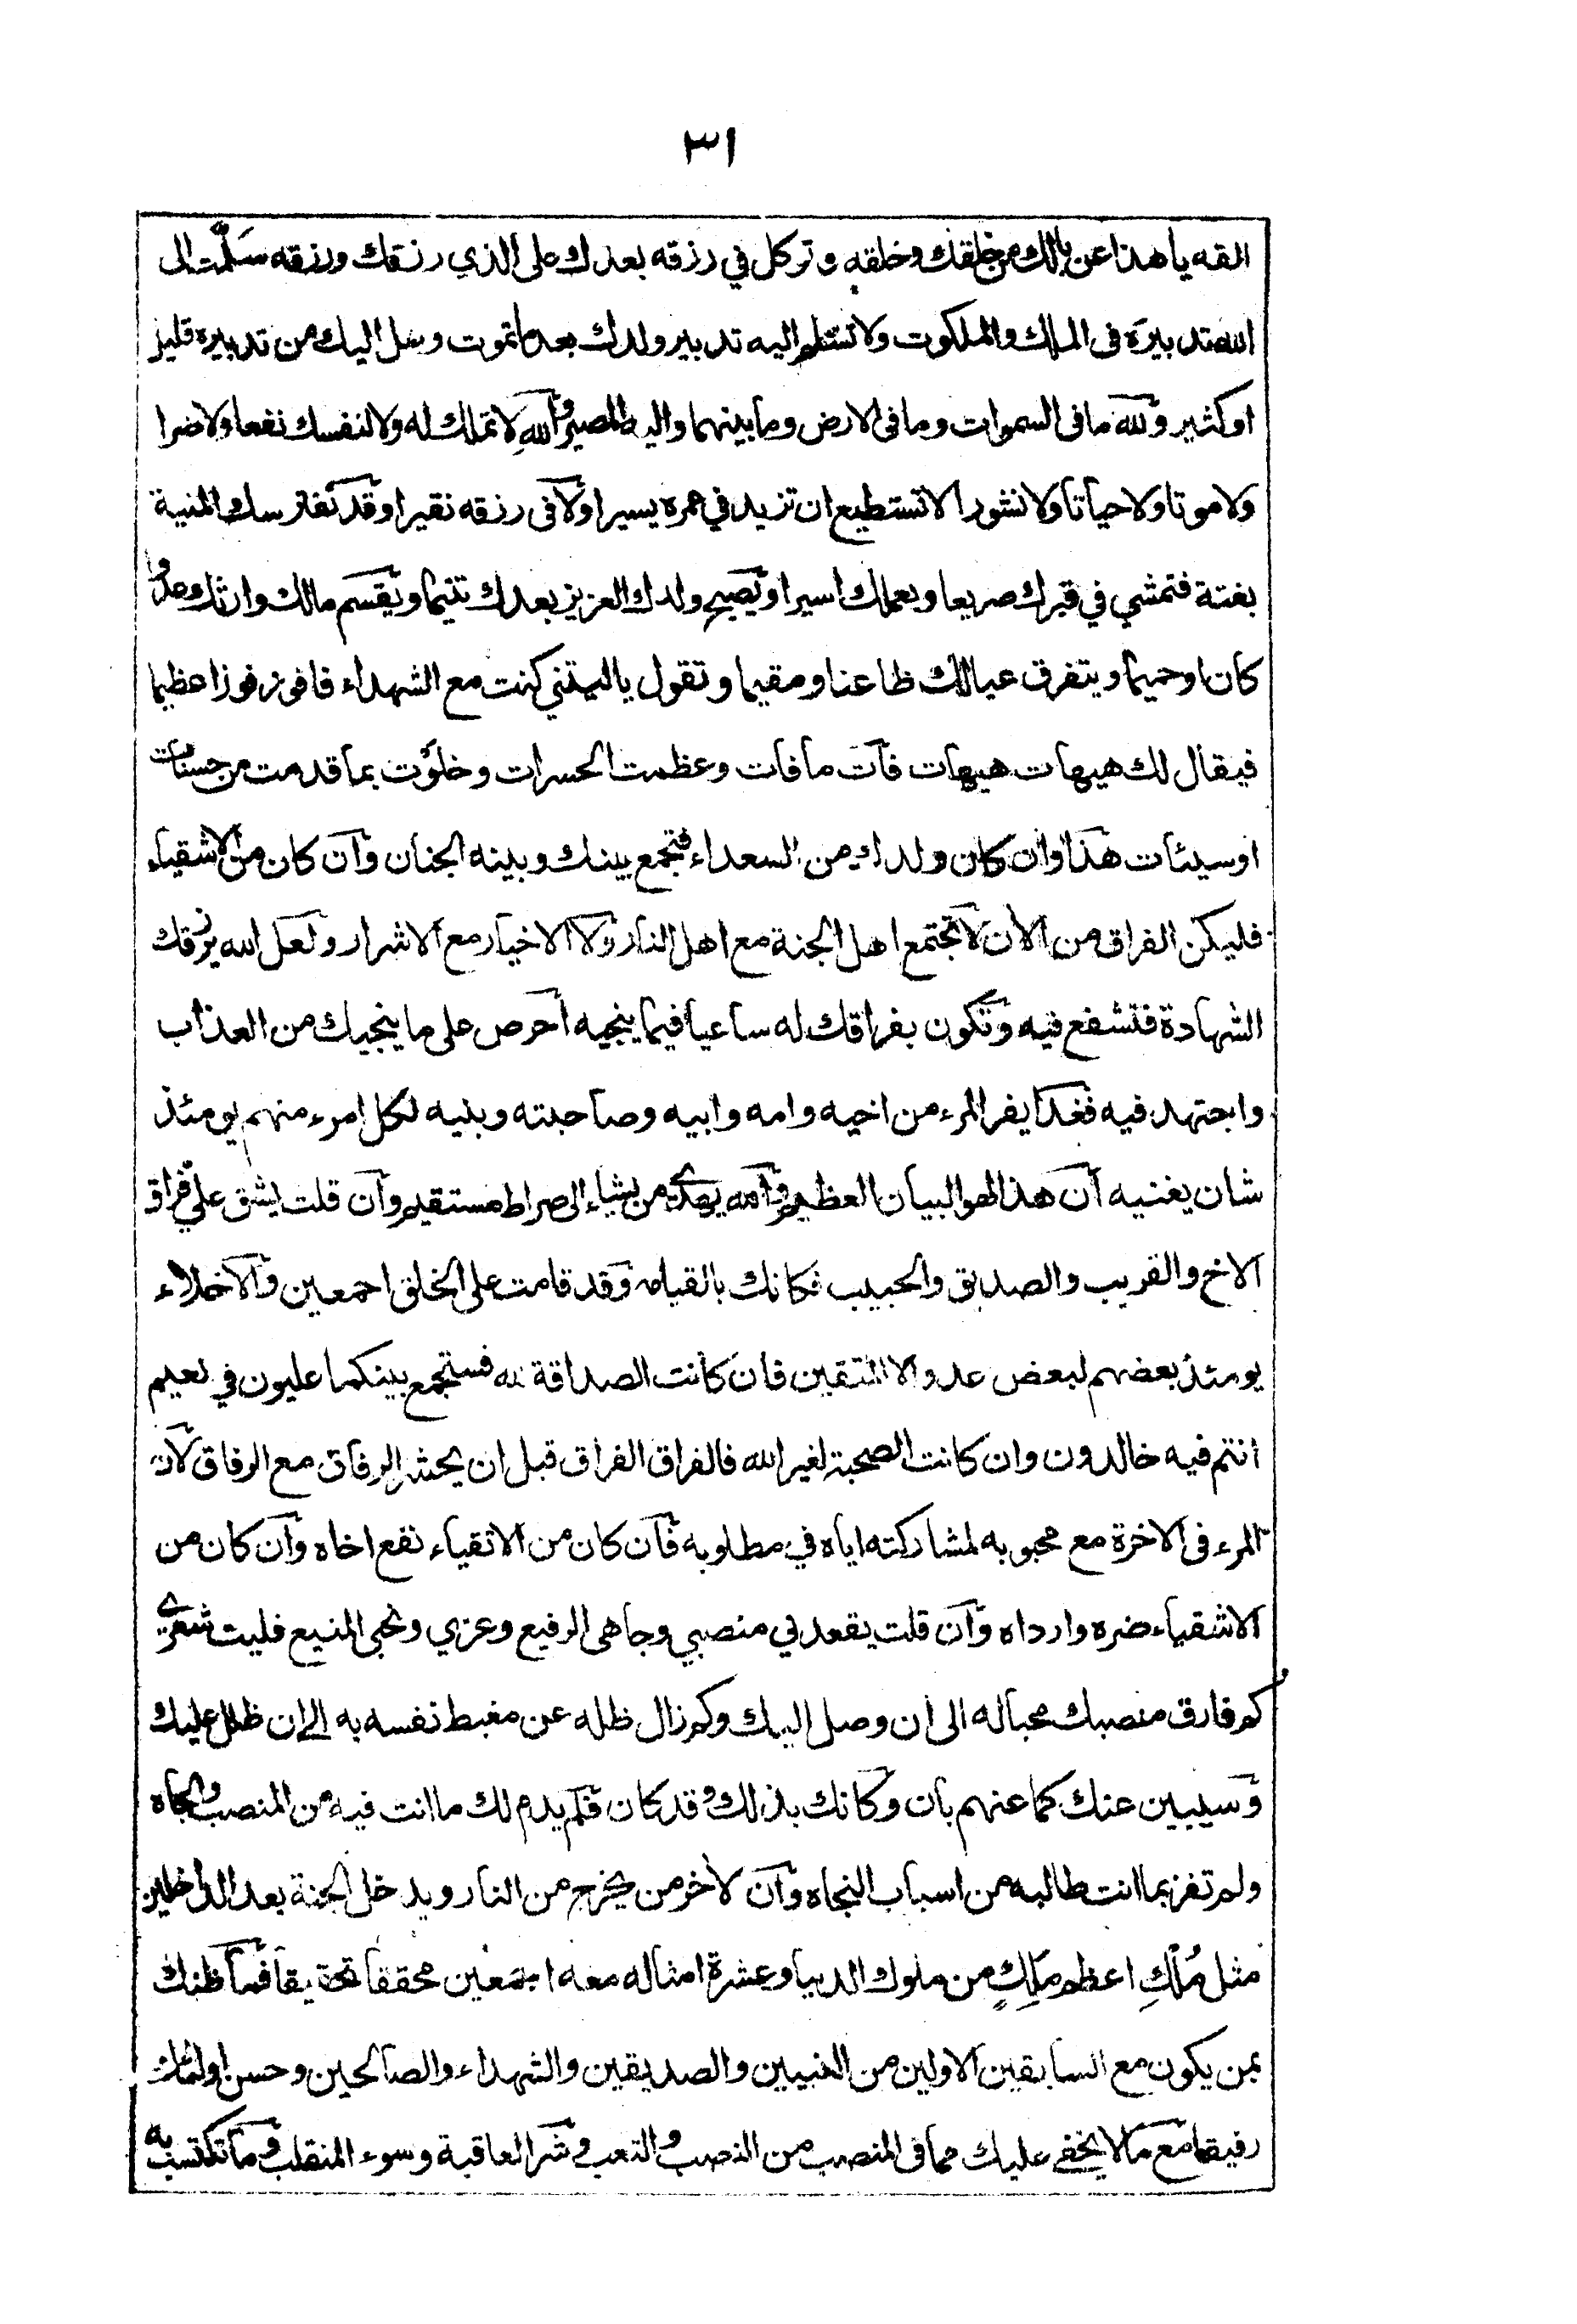 ٣١
القه يا هذا عن بالك من خلقك وخلقه وتوكل في رزقه بعدك على الذي رزقك ورزقه سلّمت الى
الله تدبيره فى الملك والملكوت ولا تسلم اليه تدبير ولدك بعد ما تموت وهل اليك من تدبيره قليل
او كثير ولله ما فى السموات وما فى الارض وما بينهما واليه المصير والله لا تملك له ولا لنفسك نفعا ولا ضرا
ولا موتا ولا حياتا ولا نشورا لا تستطيع ان تزيد في عمره يسيرا ولا فى رزقه نقيرا وقد تفترسك المنية
بغتة فتمشي في قبرك صريعا وبعملك اسيرا ويصبح ولدك العزيز بعدك يتيما ويقسم مالك وارثك عدوا
كان او حميما ويتفرق عيالك ظاعنا ومقيما وتقول يا ليتني كنت مع الشهداء فافوز فوزا عظيما
فيقال لك هيهات هيهات فات ما فات وعظمت الحسرات وخلوت بما قدمت من حسنات
او سيئات هذا وان كان ولدك من السعداء فتجمع بينك وبينه الجنان وان كان من الاشقياء
فليكن الفراق من الان لا تجتمع اهل الجنة مع اهل النار ولا الاخيار مع الاشرار ولعل الله يرزقك
الشهادة فتشفع فيه وتكون بفراقك له ساعيا فيما ينجيه احرص على ما ينجيك من العذاب
واجتهد فيه فغدا يفر المرء من اخيه وامه وابيه وصاحبته وبنيه لكل امرء منهم يومئذ
شان يغنيه ان هذا لهو البيان العظيم والله يهدى من يشاء الى صراط مستقيم وان قلت يشق علي فراق
الاخ والقريب والصديق والحبيب فكانك بالقيامه وقد قامت على الخلق اجمعين والاخلاء
يومئذ بعضهم لبعض عدو الا المتقين فان كانت الصداقة لله فستجمع بينكما عليون في نعيم
انتم فيه خالدون وان كانت الصحبة لغير الله فالفراق الفراق قبل ان يحشر الرفاق مع الرفاق لان
المرء فى الاخرة مع محبوبه لمشاركته اياه في مطلوبه فان كان من الاتقياء نفع اخاه وان كان من
الاشقياء ضره وارداه وان قلت يقعد لي منصبي وجاهى الرفيع وعزي المنيع فليت شعرى
كم فارق منصبك محبا له الى ان وصل اليك وكم زال ظله عن مغبط نفسه به الى ان ظلل عليك
وسيبين عنك كما عنهم بان وكانك بذلك وقد كان فلم يدم لك ما انت فيه من المنصب والجاه
ولم تفز بما انت طالبه من اسباب النجاه وان لاخر من يخرج من النار ويدخل الجنة بعد الداخلين
مثل مُلكِ اعظم مَلِكٍ من ملوك الدنيا وعشرة امثاله معه اجمعين محققا تحقيقا فما ظنك
بمن يكون مع السابقين الاولين من النبيين والصديقين والشهداء والصالحين وحسن اولئك
رفيقا مع ما لا يخفى عليك مما فى المنصب من النصب والتعب وشر العاقبة وسوء المنقلب وما تكتسب به